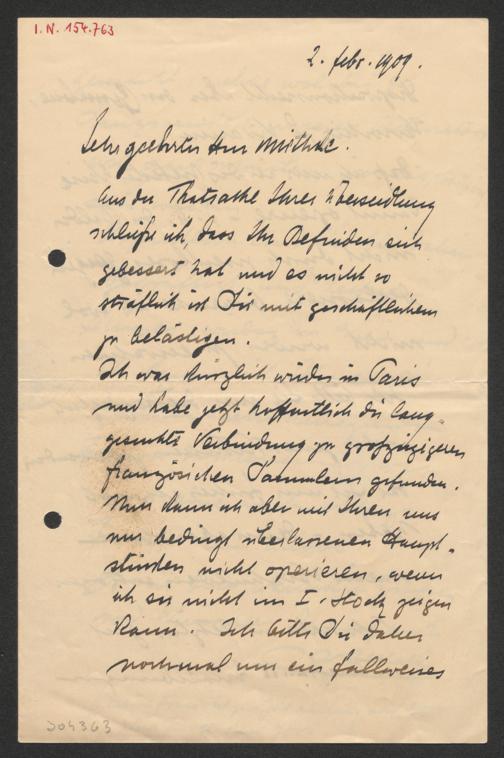 I.N. 154.763
2. febr. 1909.
Sehr geehrter Herr Miethke.
Aus der Thatsache Ihrer Übersiedlung
schließe ich, dass Ihr Befinden sich
gebessert hat und es nicht so
sträflich ist Sie mit geschäftlichem
zu belästigen.
Ich war kürzlich wieder in Paris
und habe jetzt hoffentlich die lang-
gesuchte Verbindung zu großzügigeren
französischen Sammlern gefunden.
Nun kann ich aber mit Ihren uns
nur bedingt überlassenen Haupt-
stücken nicht operieren, wenn
ich sie nicht im I. Stock zeigen
kann. Ich bitte Sie daher
nochmal um ein fallweises
304363